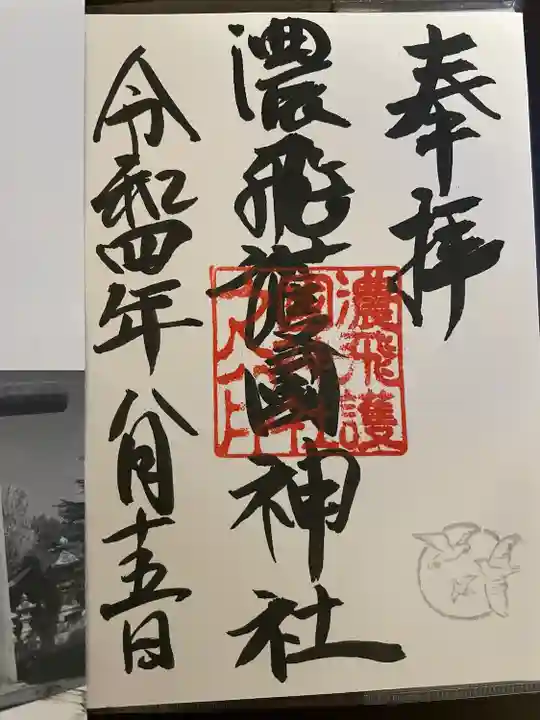 奉拝
濃飛護國神社
濃飛護
國神社
令和四年八月十五日